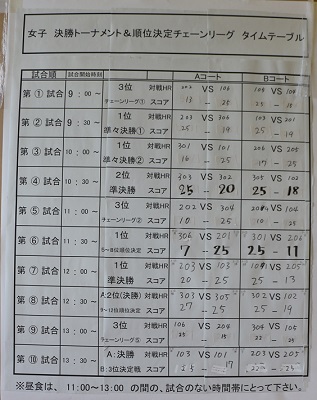 女子 決勝トーナメント＆順位決定チェーンリーグ タイムテーブル
試合順 試合開始時刻 Aコート Bコート
第①試合 9：00〜 3位 チェーンリーグ① 対戦HR VS 104 VS 104
スコア 13 - 25 25 - 18
第②試合 9：30〜 1位 準々決勝① 対戦HR 203 VS 306 103 VS 201
スコア 25 - 19 25 - 19
第③試合 10：00〜 1位 準々決勝② 対戦HR 301 VS 101 206 VS 205
スコア 16 - 25 17 - 25
第④試合 10：30〜 2位 準決勝 対戦HR 303 VS 302 305 VS 102
スコア 25 - 20 25 - 18
第⑤試合 11：00〜 3位 チェーンリーグ 対戦HR 202 VS 304 VS 104
スコア 10 - 25 10 - 25
第⑥試合 11：30〜 1位 5〜8位順位決定 対戦HR 306 VS 201 301 VS 206
スコア 7 - 25 25 - 17
第⑦試合 12：00〜 1位 準決勝 対戦HR 203 VS 103 VS 205
スコア 20 - 25 25 - 13
第⑧試合 12：30〜 A:2位(決勝) 9〜12位順位決定 対戦HR 303 VS 305 302 VS 102
スコア 27 - 25 25 - 19
第⑨試合 13：00〜 3位 チェーンリーグ⑤ 対戦HR 106 VS 204 304 VS 104
スコア 25 - 15 22 - 25
第⑩試合 13：30〜 A:決勝 B:3位決定戦 対戦HR 103 VS 101 203 VS 205
スコア - 17
※昼食は、11:00〜13:00 の間の、試合のない時間帯にとって下さい。